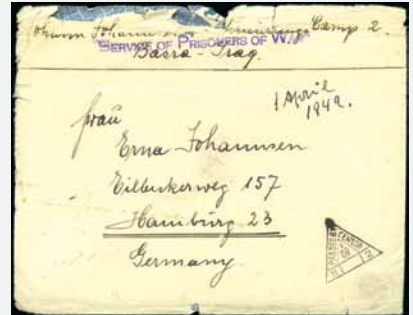 Johann Camp 2.
SERVICE OF PRISONERS OF WAR
Basra - Iraq.
1 April
1942.
Frau
Erna Johannsen
Eilbeckerweg 157
Hamburg 23
Germany
PASSED BY
CENSOR
2